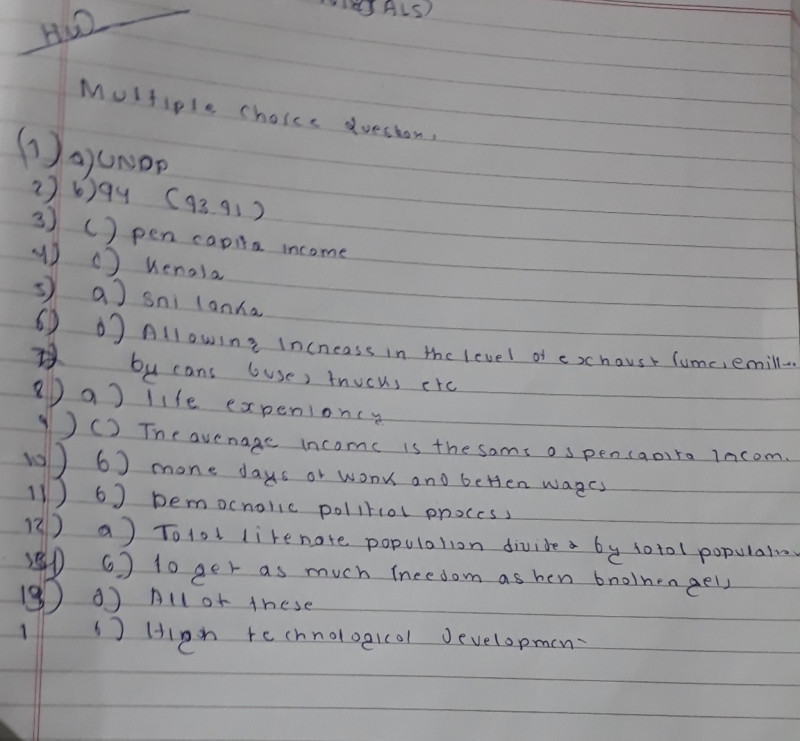 ALS)
HW
Multiple choice Question,
(1) a) UNDP
2) b) 94 (93.91)
3) c) per capita income
4) c) Kerala
5) a) Sri lanka
6) d) Allowing increass in the level of exhaust fume, emill..
7) by cars buse, trucks etc
8) a) life experiancy
9) c) The avenage income is the same as percapita Incom.
10) b) more days of work and better wages
11) b) Democratic political process
12) a) Total literate population divided by total population
c) to get as much freedom as her brother gets
13) d) All of these
1 High technological Developmen